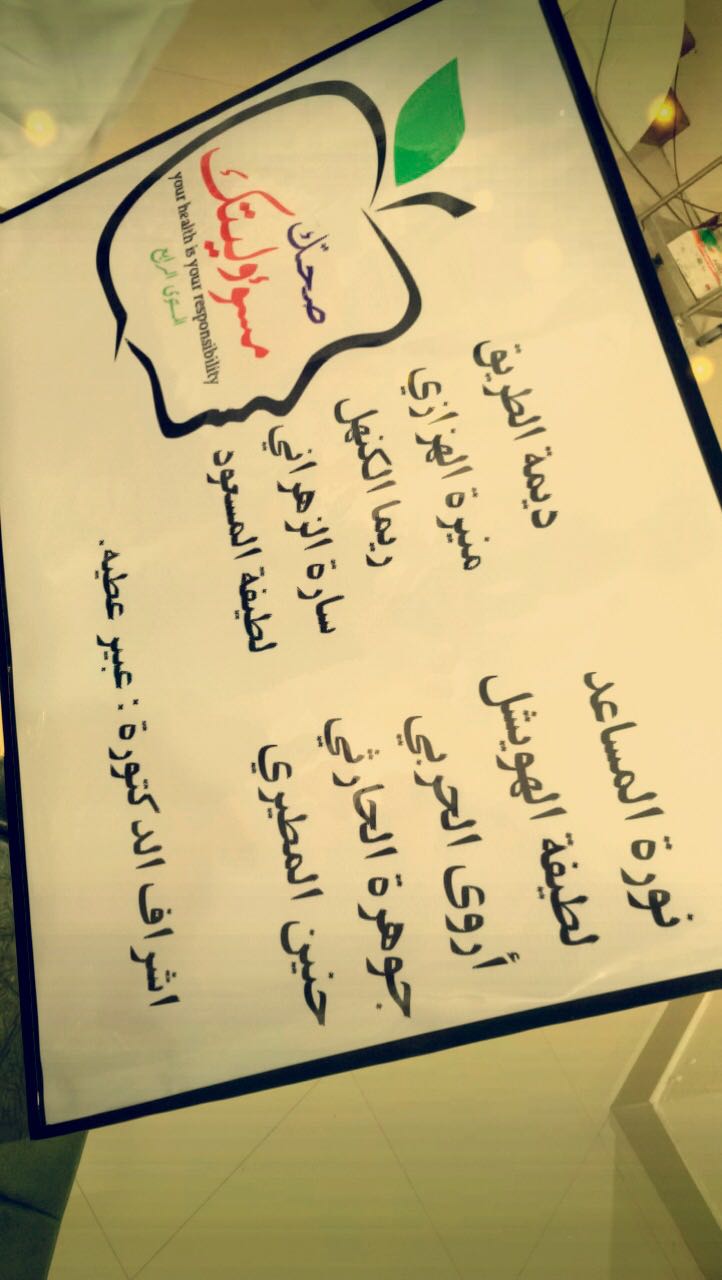 صحتك
مسؤوليتك
your health is your responsibility
المستوى الرابع
نورة المساعد
لطيفة الهويشل
أروى الحربي
جوهرة الحارثي
حنين المطيري
ديمة الطريق
منيرة الهزازي
ريما الكنهل
سارة الزهراني
لطيفة المسعود
اشراف الدكتورة : عبير عطيه.